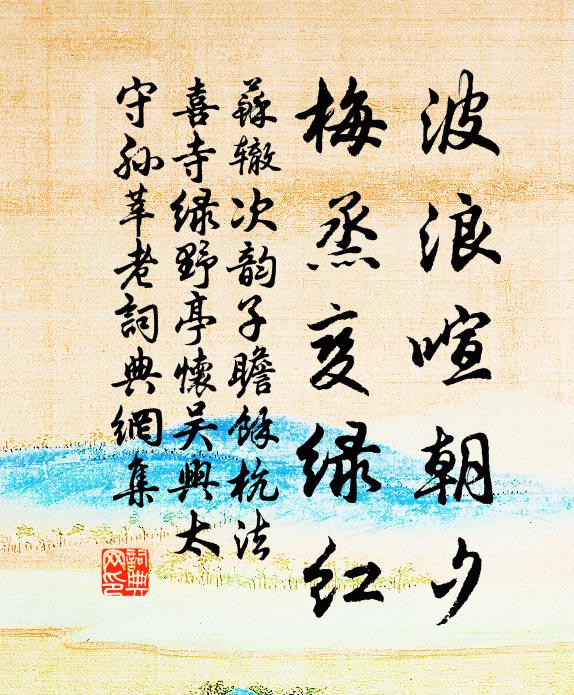 波浪喧朝夕
梅蒸变绿红
苏辙次韵子瞻余杭法
喜寺绿野亭怀吴兴太
守孙莘老词典网集